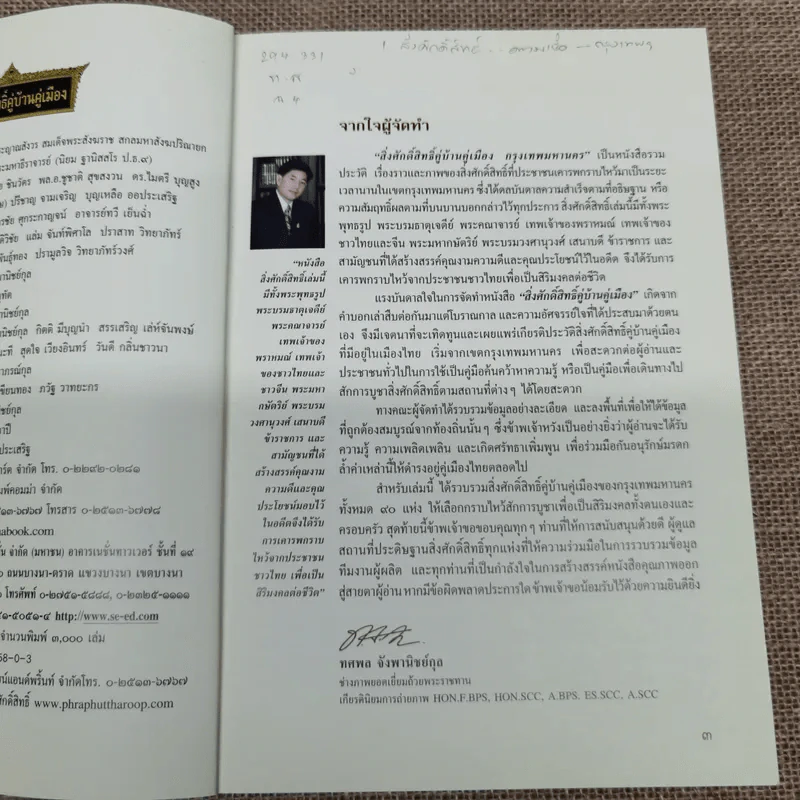 ธิ์คู่บ้านคู่เมือง
ระญาณสังวร สมเด็จพระสังฆราช สกลมหาสังฆปริณายก
ระมหาธีราจารย์ (นิยม ฐานิสสโร ป.ธ.๙)
อ ชินวัตร พล.อ.ชูชาติ สุขสงวน ดร.ไมตรี บุญสูง
ปรีชาญ จามเจริญ บุญเหลือ ออประเสริฐ
รชัย ศุกระกาญจน์ อาจารย์ทวี เย็นฉ่ำ
ติวิชัย แล่ม จันท์พิศาโล ปราสาท วิทยาภัทร์
พันธุ์ทอง ปรามูลวิจ วิทยาภัทร์วงศ์
านิชย์กุล
านิชย์กุล กิตติ มีบุญนำ สรรเสริญ เล่ห์จันพงษ์
นะที สุดใจ เวียงอินทร์ วันดี กลิ่นชาวนา
ภรณ์กุล
ขียนทอง ภวัฐ วาทยะกร
นิชย์กุล
าปี
ประเสริฐ
ร์ด จำกัด โทร. ๐-๒๒๙๒-๐๒๘๑
มพ์คอมม่า จำกัด
๓-๖๗๖๗ โทรสาร ๐-๒๕๑๓-๖๗๗๘
abook.com
น จำกัด (มหาชน) อาคารเนชั่นทาวเวอร์ ชั้นที่ ๑๙
๐ ถนนบางนา-ตราด แขวงบางนา เขตบางนา
๐ โทรศัพท์ ๐-๒๗๕๑-๕๘๘๘, ๐-๒๓๒๕-๑๑๑๑
๕๑-๕๐๕๑-๔ http://www.se-ed.com
จำนวนพิมพ์ ๓,๐๐๐ เล่ม
58-0-3
ชน์แอนด์พริ้นท์ จำกัดโทร. ๐-๒๕๑๓-๖๗๖๗
ศักดิ์สิทธิ์ www.phraphuttharoop.com
จากใจผู้จัดทำ
“สิ่งศักดิ์สิทธิ์คู่บ้านคู่เมือง กรุงเทพมหานคร” เป็นหนังสือรวม
ประวัติ เรื่องราวและภาพของสิ่งศักดิ์สิทธิ์ที่ประชาชนเคารพกราบไหว้มาเป็นระยะ
เวลานานในเขตกรุงเทพมหานคร ซึ่งได้ดลบันดาลความสำเร็จตามที่อธิษฐาน หรือ
ความสัมฤทธิ์ผลตามที่บนบานบอกกล่าวไว้ทุกประการ สิ่งศักดิ์สิทธิ์เล่มนี้มีทั้งพระ
พุทธรูป พระบรมธาตุเจดีย์ พระคณาจารย์ เทพเจ้าของพราหมณ์ เทพเจ้าของ
ชาวไทยและจีน พระมหากษัตริย์ พระบรมวงศานุวงศ์ เสนาบดี ข้าราชการ และ
สามัญชนที่ได้สร้างสรรค์คุณงามความดีและคุณประโยชน์ไว้ในอดีต จึงได้รับการ
เคารพกราบไหว้จากประชาชนชาวไทยเพื่อเป็นสิริมงคลต่อชีวิต
แรงบันดาลใจในการจัดทำหนังสือ “สิ่งศักดิ์สิทธิ์คู่บ้านคู่เมือง” เกิดจาก
คำบอกเล่าสืบต่อกันมาแต่โบราณกาล และความอัศจรรย์ใจที่ได้ประสบมาด้วยตน
เอง จึงมีเจตนาที่จะเทิดทูนและเผยแพร่เกียรติประวัติสิ่งศักดิ์สิทธิ์คู่บ้านคู่เมือง
ที่มีอยู่ในเมืองไทย เริ่มจากเขตกรุงเทพมหานคร เพื่อสะดวกต่อผู้อ่านและ
ประชาชนทั่วไปในการใช้เป็นคู่มือค้นคว้าหาความรู้ หรือเป็นคู่มือเพื่อเดินทางไป
สักการบูชาสิ่งศักดิ์สิทธิ์ตามสถานที่ต่าง ๆ ได้โดยสะดวก
ทางคณะผู้จัดทำได้รวบรวมข้อมูลอย่างละเอียด และลงพื้นที่เพื่อให้ได้ข้อมูล
ที่ถูกต้องสมบูรณ์จากท้องถิ่นนั้น ๆ ซึ่งข้าพเจ้าหวังเป็นอย่างยิ่งว่าผู้อ่านจะได้รับ
ความรู้ ความเพลิดเพลิน และเกิดศรัทธาเพิ่มพูน เพื่อร่วมมือกันอนุรักษ์มรดก
ล้ำค่าเหล่านี้ให้ดำรงอยู่คู่เมืองไทยตลอดไป
สำหรับเล่มนี้ ได้รวบรวมสิ่งศักดิ์สิทธิ์คู่บ้านคู่เมืองของกรุงเทพมหานคร
ทั้งหมด ๙๐ แห่ง ให้เลือกกราบไหว้สักการบูชาเพื่อเป็นสิริมงคลทั้งตนเองและ
ครอบครัว สุดท้ายนี้ข้าพเจ้าขอขอบคุณทุก ๆ ท่านที่ให้การสนับสนุนด้วยดี ผู้ดูแล
สถานที่ประดิษฐานสิ่งศักดิ์สิทธิ์ทุกแห่งที่ให้ความร่วมมือในการรวบรวมข้อมูล
ทีมงานผู้ผลิต และทุกท่านที่เป็นกำลังใจในการสร้างสรรค์หนังสือคุณภาพออก
สู่สายตาผู้อ่าน หากมีข้อผิดพลาดประการใด ข้าพเจ้าขอน้อมรับไว้ด้วยความยินดียิ่ง
“หนังสือ
สิ่งศักดิ์สิทธิ์เล่มนี้
มีทั้งพระพุทธรูป
พระบรมธาตุเจดีย์
พระคณาจารย์
เทพเจ้าของ
พราหมณ์ เทพเจ้า
ของชาวไทยและ
ชาวจีน พระมหา
กษัตริย์ พระบรม
วงศานุวงศ์ เสนาบดี
ข้าราชการ และ
สามัญชนที่ได้
สร้างสรรค์คุณงาม
ความดีและคุณ
ประโยชน์มอบไว้
ในอดีตจึงได้รับ
การเคารพกราบ
ไหว้จากประชาชน
ชาวไทย เพื่อเป็น
สิริมงคลต่อชีวิต”
ทศพล จังพานิชย์กุล
ช่างภาพยอดเยี่ยมถ้วยพระราชทาน
เกียรตินิยมการถ่ายภาพ HON.F.BPS, HON.SCC, A.BPS. ES.SCC, A.SCC
๓